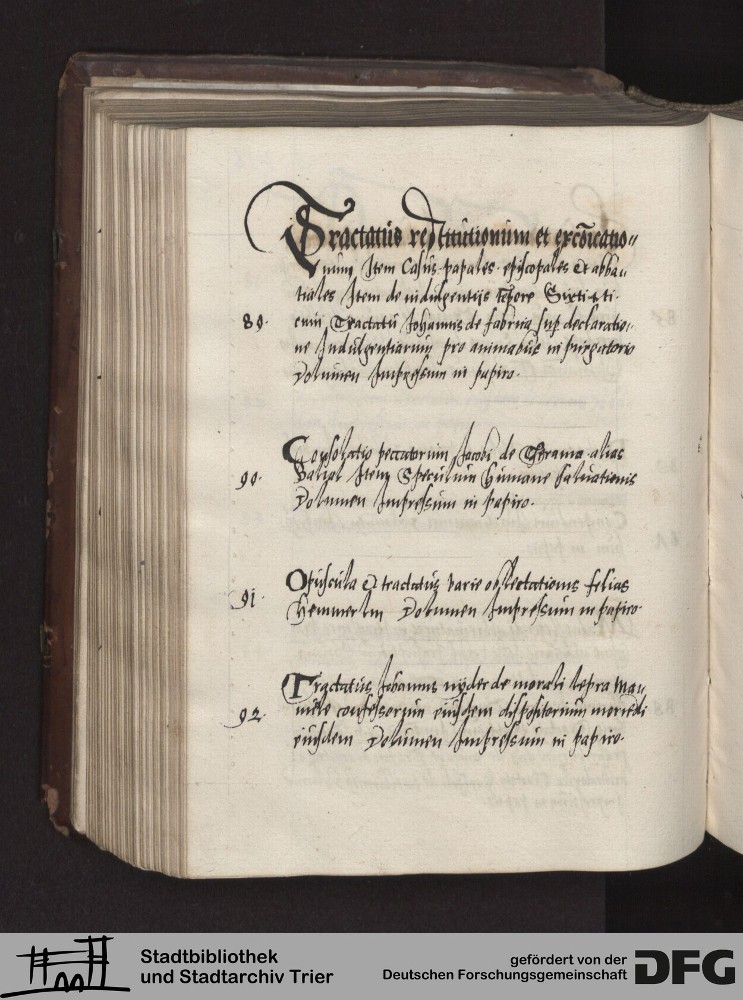 Tractatus restitutionum et excōicatio„
num Item Casus papales episcopales et abba„
tiales Item de indulgentijs tp̄ore Sixti 4ti
89. cum Tractatu Johannis de fabrica sup declaratio„
ne Indulgentiarum pro animabus in purgatorio
Volumen Impressum in papiro.
Consolatio peccatorum Jacobi de Theramo alias
90. Balial Item Speculum humane saluationis
Volumen Impressum in papiro.
Opuscula et tractatus varie oblectationis felias
91. Hemmerlin Volumen Impressum in papiro
Tractatus Johannis nyder de morali lepra Man„
92. uale confessorum eiusdem dispositorium moriēdi
eiusdem Volumen Impressum in papiro.
Stadtbibliothek
und Stadtarchiv Trier
gefördert von der
Deutschen Forschungsgemeinschaft
DFG